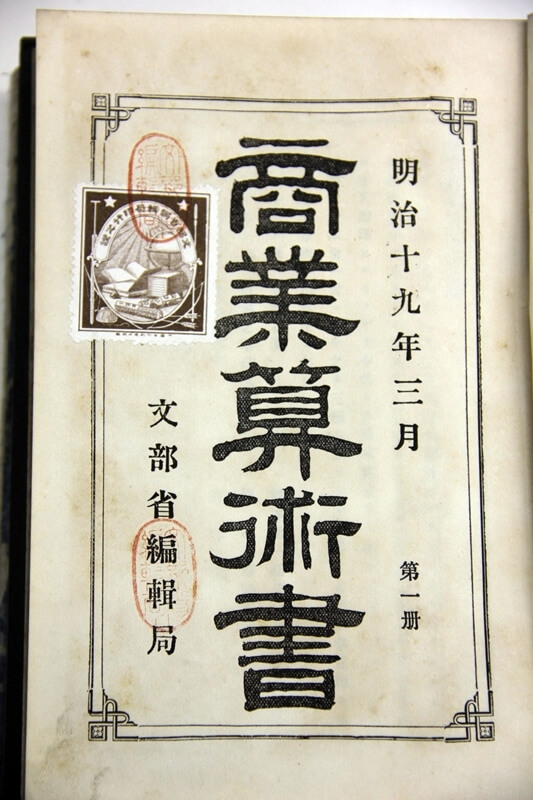 明治十九年三月
第一册
商業算術書
文部省編輯局